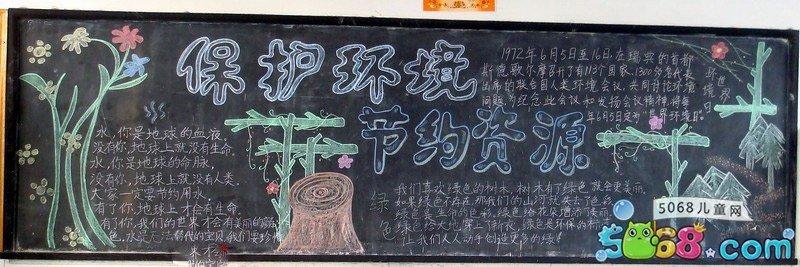 保护环境
节约资源
1972年6月5日至16日在瑞典的首都
斯德歌尔摩召开了有113个国家,1300多名代表
出席的联合国人类环境会议,共同讨论环境
问题,为纪念此会议和发扬会议精神,将每
年6月5日定为世界环境日。
世界
环境
日
水,你是地球的血液
没有你,地球上就没有生命。
水,你是地球的命脉,
没有你,地球上就没有人类。
大家一定要节约用水,
有了你,地球上才会有生命。
有了你,我们的世界才会有美丽的
色,水是万古替代的宝贝,我们要珍惜
绿
色
我们喜欢绿色的树木,树木有了绿色就会更美丽
如果绿色不存在,那我们的山河就失去了色彩
绿色是生命的色彩,绿色给花朵增添了美丽
绿色给大地穿上了新衣,绿色是环保的标
让我们人人动手创造更多的绿!
5068儿童网
5068.com